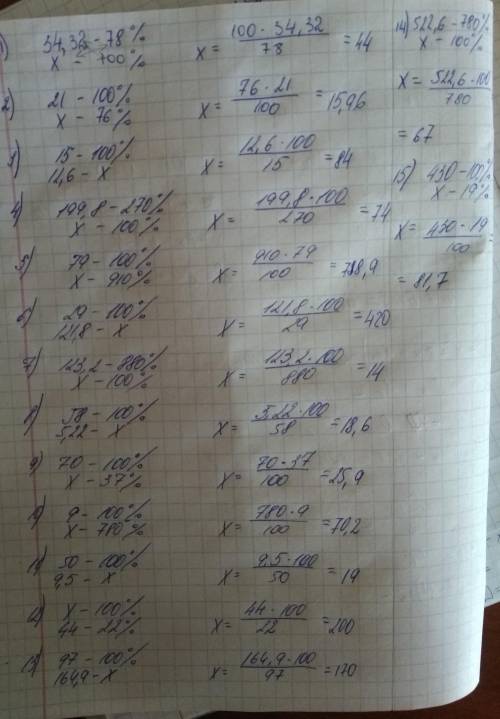 1) 34,32 - 78% x = 100·34,32/78 = 44
x - 100%
2) 21 - 100% x = 76·21/100 = 15,96
x - 76%
3) 15 - 100% x = 12,6·100/15 = 84
12,6 - x
4) 199,8 - 270% x = 199,8·100/270 = 74
x - 100%
5) 79 - 100% x = 910·79/100 = 718,9
x - 910%
6) 29 - 100% x = 121,8·100/29 = 420
121,8 - x
7) 123,2 - 880% x = 123,2·100/880 = 14
x - 100%
8) 58 - 100% x = 5,22·100/58 = 18,6
5,22 - x
9) 70 - 100% x = 70·37/100 = 25,9
x - 37%
10) 9 - 100% x = 780·9/100 = 70,2
x - 780%
11) 50 - 100% x = 9,5·100/50 = 19
9,5 - x
12) x - 100% x = 44·100/22 = 200
44 - 22%
13) 97 - 100% x = 164,9·100/97 = 170
164,9 - x
14) 522,6 - 780%
x - 100%
x = 522,6·100/780
= 67
15) 430 - 100%
x - 19%
x = 430·19/100 =
= 81,7